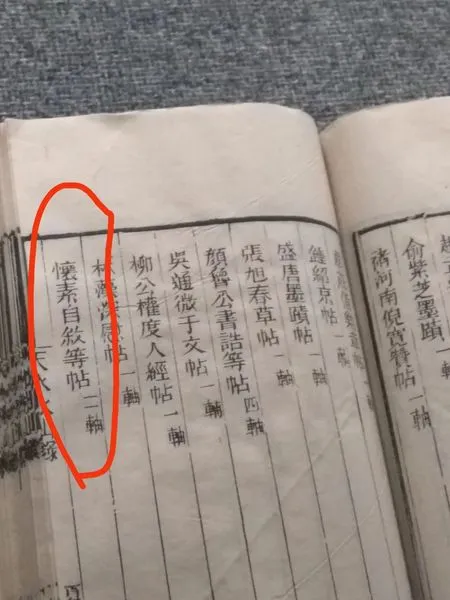 俞紫芝墨蹟
河南倪寬贊帖 一軸
鍾紹京帖 一軸
盛唐墨蹟帖 一軸
張旭春草帖 一軸
顏魯公書誥等帖 四軸
吳通微千文帖 一軸
柳公權度人經帖 一軸
林藻深慰帖 一軸
懷素自敘等帖 二軸
天水